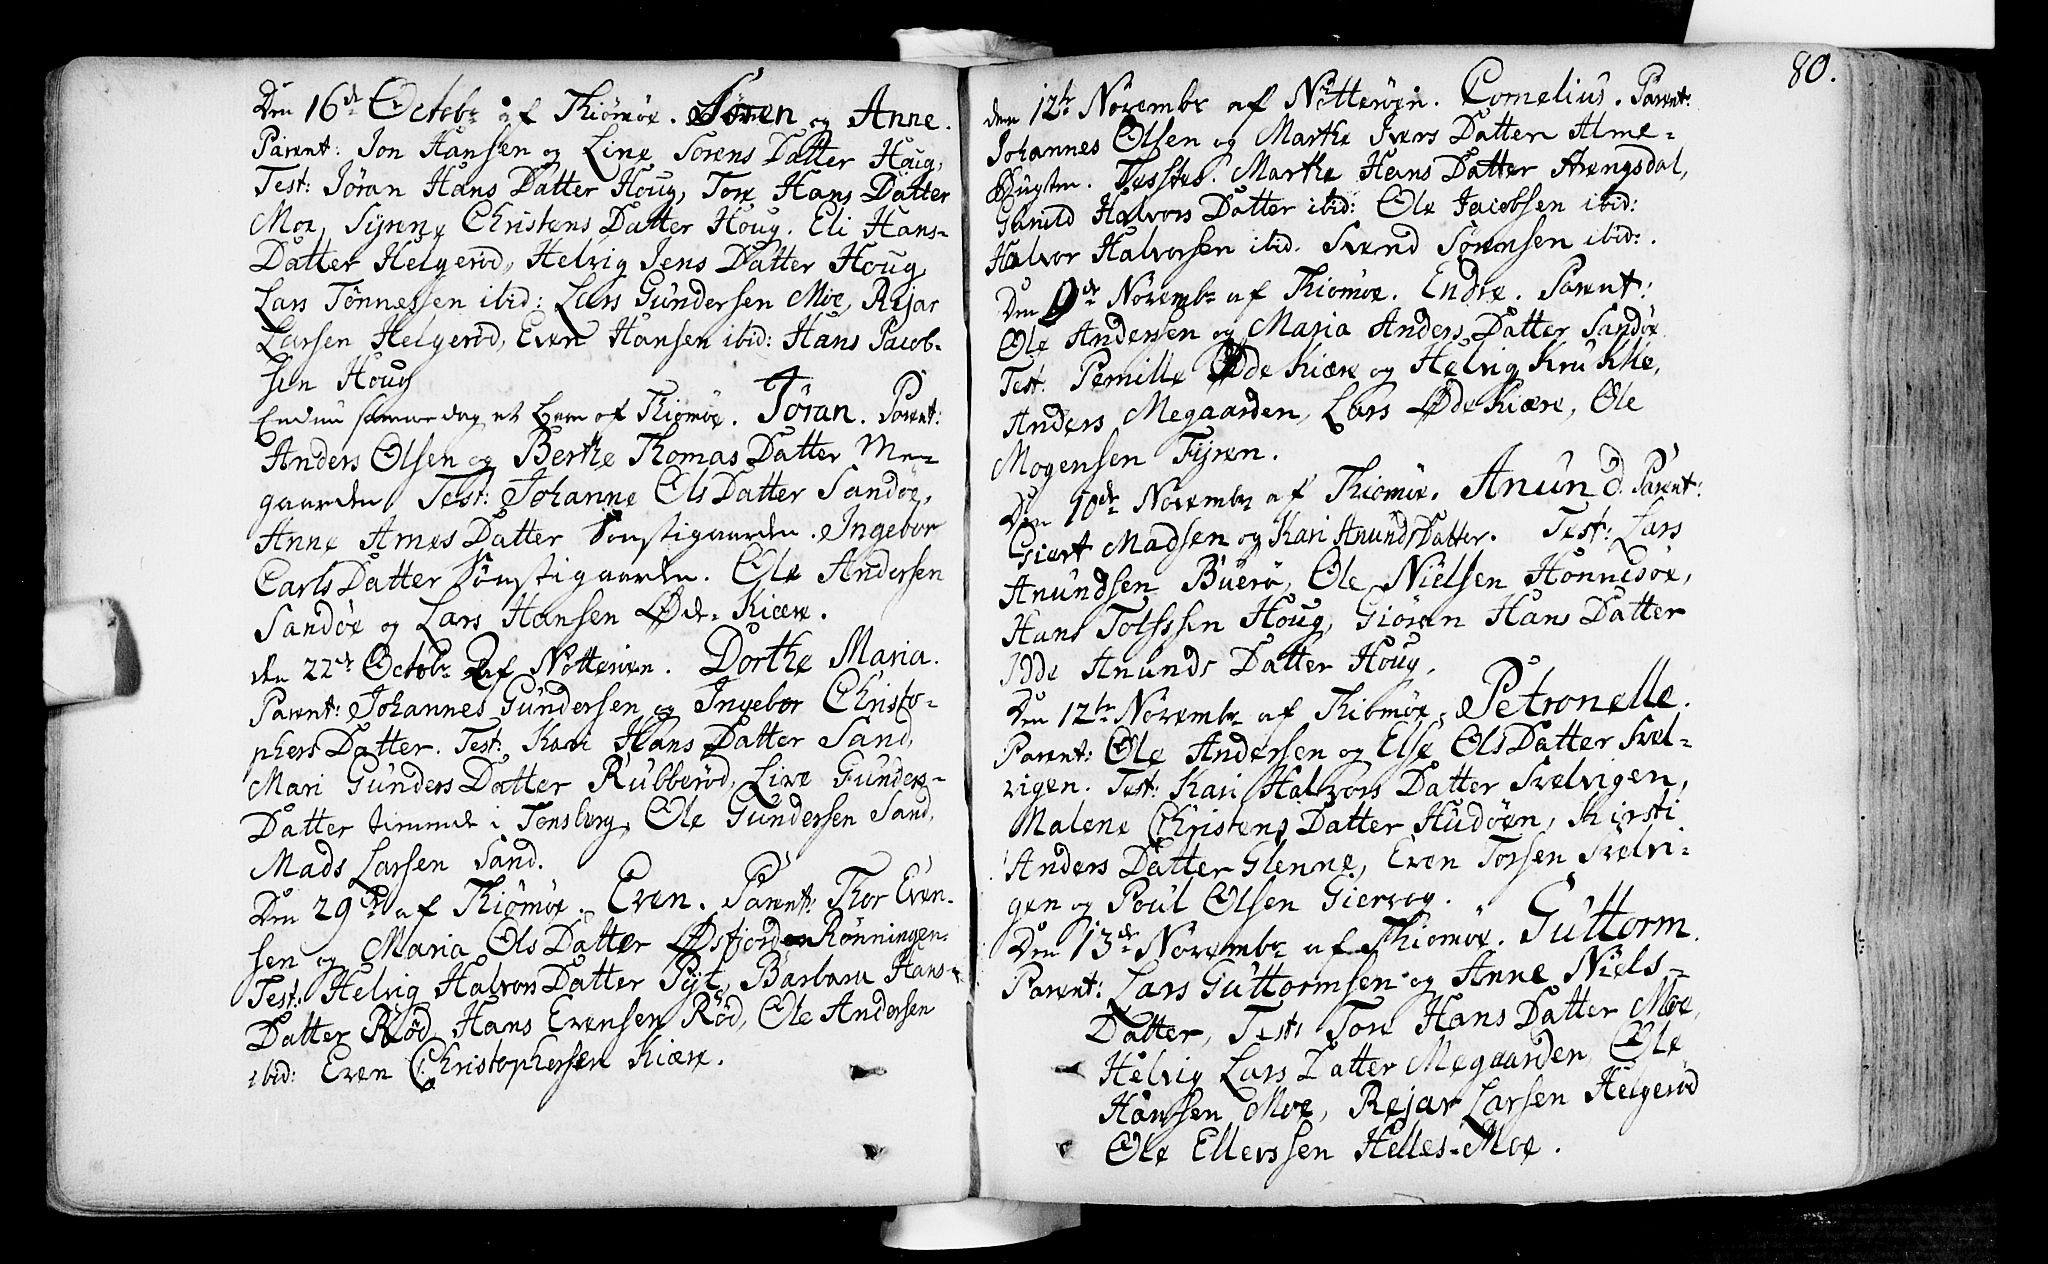 Den 16de Octobr af Thiömöe. Sören og Anne.
Parent: Jon Hansen og Line Sorens Datter Houg,
Test: Jöran Hans Datter Houg, Tore Hans Datter
Moe, Syrene Christens Datter Houg. Eli Hans-
Datter Helgeröd, Helvig Jens Datter Houg,
Lars Tönnessen ibid: Lars Gundersen Moe, Rejar
Larsen Helgeröd, Even Hansen ibid: Hans Jacob-
sen Houg
Endnu samme dag et Barn af Thiomöe. Jöran. Parent:
Anders Olsen og Berthe Thomas Datter Me-
gaarden Test: Johanne Ols Datter Sandöe,
Anne Arnes Datter Sönstigaarden. Ingebor
Carls Datter Sönstigaarden. Ole Andersen
Sandöe og Lars Hansen Øde-Kiære.
den 22de Octobr af Nötteröen. Dorthe Maria.
Parent: Johannes Gundersen og Ingebor Christo-
phers Datter. Test: Kari Hans Datter Sand,
Mari Gunders Datter Rubberöd, Live Gunders-
Datter tienende i Tonsberg, Ole Gundersen Sand,
Mads Larsen Sand.
Den 29de af Thiömöe. Even. Parent: Thor Even-
sen og Maria Ols Datter Østjorden Rönningen.
Test: Helvig Halvors Datter Pyt, Barbara Hans-
Datter Röd, Hans Evensen Röd, Ole Andersen
ibid: Even Christophersen Kiære.
80.
den 12te Novembr af Nötteröen. Cornelius. Parent:
Johannes Olsen og Marthe Ivers Datter Alme-
Schougen. Testes. Marthe Hans Datter Arengsdal,
Gunild Halvors Datter ibid: Ole Jacobsen ibid:
Halvor Halvorsen ibid. Svend Sörensen ibid:.
Den 9de Novembr af Thiomöe. Endre. Parent:
Ole Andersen og Maria Anders Datter Sandöe
Test: Pernille Ødekiære og Helvig Krukkle,
Anders Megaarden, Lars Ødekiære, Ole
Mogensen Fyren.
Den 10de Novembr af Thiomöe. Anund. Parent:
Giert Madsen og Kari Anunds Datter. Test: Lars
Anundsen Buerö, Ole Nielsen Honnisöe,
Hans Tolfssen Houg, Giören Hans Datter
Idde Anunds Datter Houg.
Den 12te Novembr af Thiomöe. Petronelle.
Parent: Ole Andersen og Else Ols Datter Svel-
vigen. Test: Kari Halvors Datter Svelvigen,
Malene Christens Datter Hudöen, Kirsti
Anders Datter Glenne, Even Torsen Svelvi-
gen og Poul Olsen Giervog.
Den 13de Novembr af Thiomöe. Guttorm.
Parent: Lars Guttormsen og Anne Niels-
Datter, Test: Tore Hans Datter Moe,
Helvig Lars Datter Megaarden, Ole
Hanssen Moe, Rejar Larsen Helgeröd
Ole Ellerssen Helles-Moe.